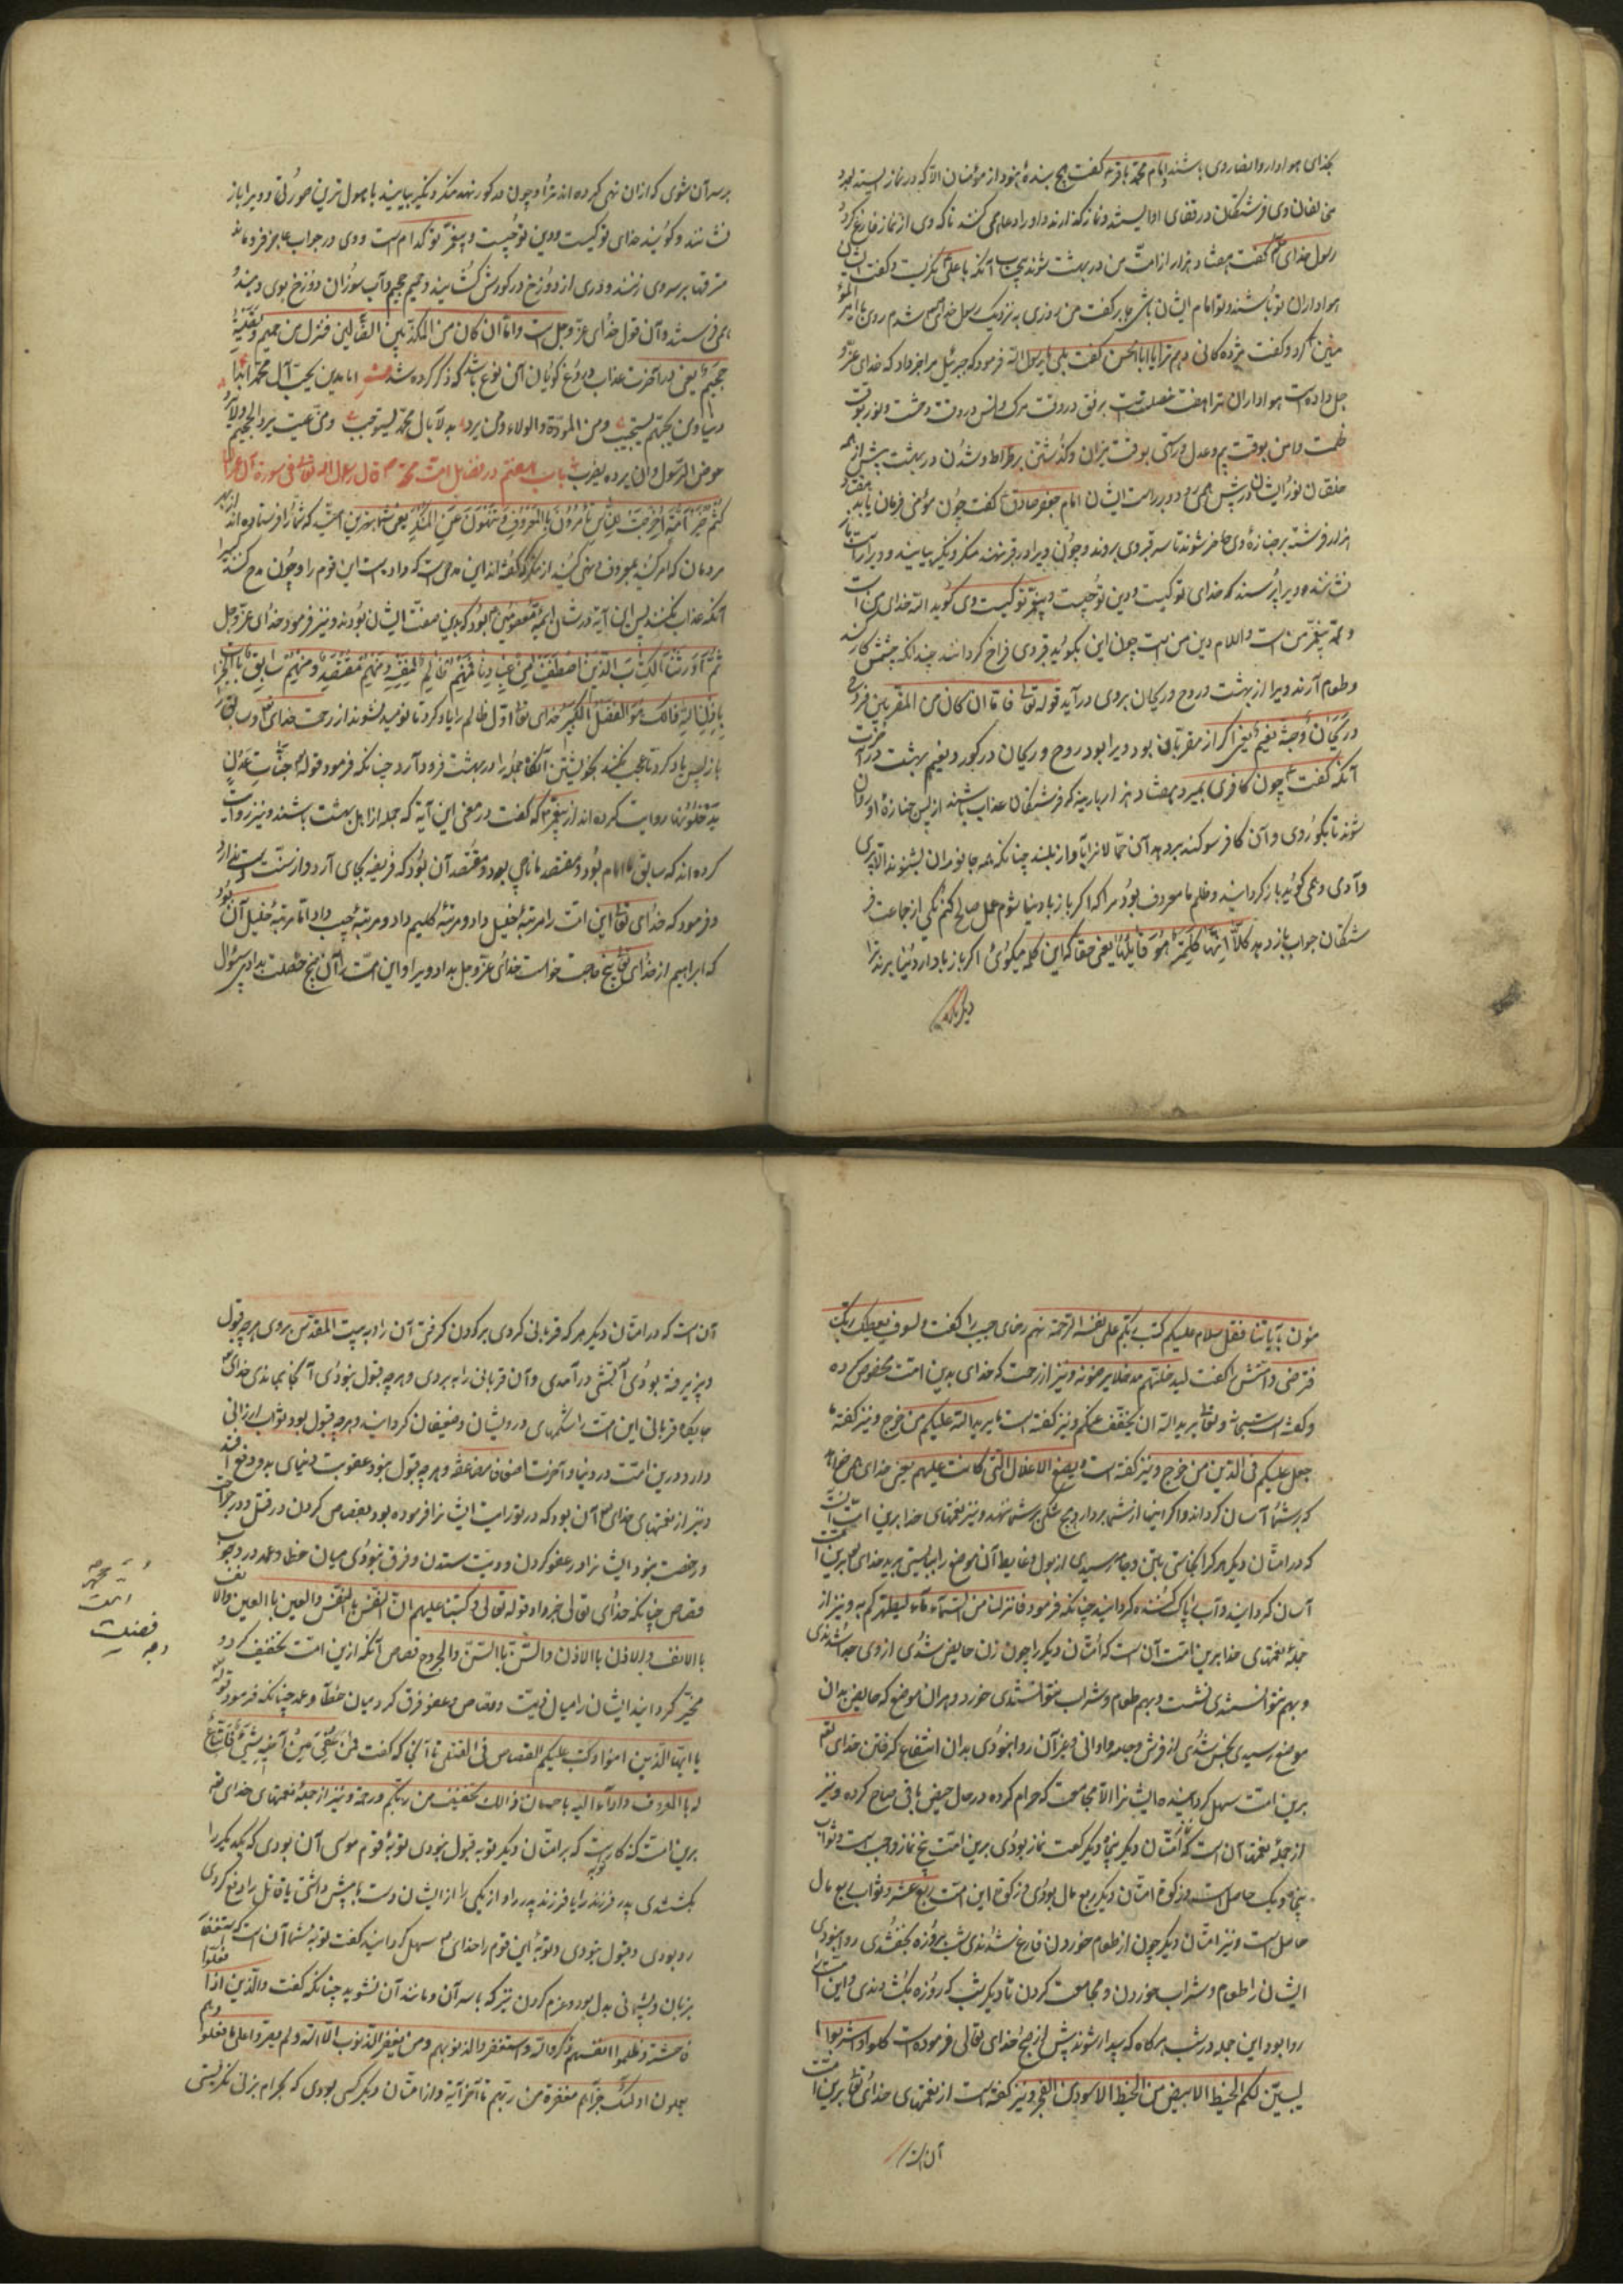 بخدای هوادار وانصار وی باشند امام محمد باقر گفت هیچ بندهٔ نبود از مؤمنان الا که در نماز ایستد
مخالفان وی فرشتگان در قفای او ایستند و نماز گذارند و او را دعا همی کنند تا که وی از نماز فارغ
رسول خدای گفت هفتاد هزار از امت من در بهشت شوند بی حساب آنکه با علی نگریست و گفت
هواداران تو باشند و تو امام ایشان باشی جابر گفت من روزی به نزدیک رسول خدای شدم روی با امیر
کرد و گفت مژدگانی دهم ترا یا ابا الحسن گفت بلی یا رسول الله فرمود که جبرئیل مرا خبر داد که خدای عز و
جل داده است هواداران ترا هفت خصلت رفق در وقت مرگ و انس در وقت وحشت و نور بوقت
ظلمت و امن بوقت بیم و عدل و راستی بوقت میزان و گذشتن بر صراط و شدن در بهشت پیش از همه
خلقان نور ایشان در پیش همی رود و در راست ایشان امام جعفر صادق گفت چون مؤمنی فرمان یابد هفتاد
هزار فرشته بر جنازهٔ وی حاضر شوند تا سر قبر وی بروند و چون ویرا در قبر نهند منکر و نکیر بیایند و ویرا راست
بنشانند و ویرا پرسند که خدای تو کیست و دین تو چیست و پیغمبر تو کیست وی گوید الله خدای من است
و محمد پیغمبر من است و اسلام دین من است چون این بگوید قبر وی فراخ گردانند چندانکه چشمش کار کند
و طعام آرند ویرا از بهشت و روح و ریحان بر وی درآید قوله تعالی فاما ان کان من المقربین فروح
و ریحان و جنة نعیم یعنی اگر از مقربان بود ویرا بود روح و ریحان در گور و نعیم بهشت در آخرت
آنکه گفت چون کافری بمیرد هفتاد هزار زبانیه که فرشتگان عذاب باشند از پس جنازهٔ او روان
شوند تا بگور وی و آن کافر سوگند بر دهد آن حمالانرا بآواز بلند چنانکه همه جانوران بشنوند الا پری
و آدمی و همی گوید باز گردانید و ظلم ما معروف بود مرا که اگر باز بدنیا شوم عمل صالح کنم یکی از جماعت فر
شتگان جواب باز دهد کلا انها کلمة هو قائلها یعنی حقا که این کلمه میگوئی اگر باز بدار دنیا برند ترا
دیگرباره
برسر آن شوی که از آن نهی کرده اند ترا و چون در گور نهند منکر و نکیر بیایند باهول ترین صورتی و ویرا باز
نشانند و گویند خدای تو کیست و دین تو چیست و پیغمبر تو کدام است و وی در جواب عاجز فرو ماند
مترقها بر سر وی زنند و دری از دوزخ در گورش گشایند و حمیم جحیم و آب سوزان دوزخ بوی دهند
می فرستند و آن قول خدای عز و جل است واما ان کان من المکذبین الضالین فنزل من حمیم وتصلیة
جحیم یعنی در آخرت عذاب دروغ گویان آن نوع باشد که ذکر کرده شد
عوض الرسول باب هفتم در فضایل امت محمد قال رسول الله تعالی فی سورة آل عمران
کنتم خیر امة اخرجت للناس تأمرون بالمعروف وتنهون عن المنکر یعنی شما بهترین امتید که شما را فرستاده اند از بهر
مردمان که امر کنید بمعروف و نهی کنید از منکر گفته اند این مدحی است که داده است این قوم را و چون مدح کند کسی را
آنکه عذاب نکند پس این آیه در شان ایمهٔ معصومین بود که بدین صفت ایشان بودند و نیز فرمود خدای عز و جل
ثم اورثنا الکتاب الذین اصطفینا من عبادنا فمنهم ظالم لنفسه ومنهم مقتصد ومنهم سابق بالخیرات
باذن الله ذلک هو الفضل الکبیر خدای تعالی اول ظالم را یاد کرد تا نومید نشوند از رحمت خدای و سابق را
باز پس یاد کرد تا عجب نکنند بخویشتن آنگاه جمله را در بهشت فرود آرد چنانکه فرمود قوله جنات عدن
یدخلونها روایت کرده اند از پیغمبر که گفت در معنی این آیه که جمله از اهل بهشت باشند و نیز روایت
کرده اند که سابق امام بود و مقتصد ناجی بود و مقتصد آن بود که فریضه بجای آرد و از سنت
و فرمود که خدای تعالی این امت را مرتبهٔ خلیل داد و مرتبهٔ کلیم داد و مرتبهٔ حبیب داد اما مرتبهٔ خلیل آن بود
که ابراهیم از خدای تعالی پنج حاجت خواست خدای عز و جل بداد ویرا و این امت را آن پنج خصلت بداد بی سؤال
منون بآیاتنا فقل سلام علیکم کتب ربکم علی نفسه الرحمة نهم رضای حبیب را گفت ولسوف یعطیک ربک
فترضی و امتش را گفت لیدخلنهم مدخلا یرضونه و نیز از رحمت که خدای بدین امت مخصوص کرده
و گفته است سبحانه و تعالی یرید الله ان یخفف عنکم و نیز گفته است ما یرید الله علیکم من حرج و نیز گفته ما
جعل علیکم فی الدین من حرج و نیز گفته است و یضع الاغلال التی کانت علیهم یعنی خدای
که بر شما آسان گرداند و اگر اینها از شما بردارد هیچ شکی بر شما نهد و نیز نعمتهای خدا برین امت آنست
که در امتان دیگر هر که را نجاستی بتن و جامه رسیدی از بول و غایط آن موضع را ببایستی برید خدای برین امت
آسان گردانید و آب را پاک کننده گردانید چنانکه فرمود فانزلنا من السماء ماء لیطهرکم به و نیز از
جملهٔ نعمتهای خدا برین امت آن است که امتان دیگر را چون زن حایض شدی از وی جدا شدندی
و بهم نتوانستندی نشست و بهم طعام و شراب نتوانستندی خورد و هران موضع که حایض بدان
موضع رسیدی نجس شدی از فرش و جامه و اوانی و غیر آن روا نبودی بدان انتفاع گرفتن خدای تعالی
برین امت سهل گردانید ایشانرا الا مجامعت که حرام کرده در حال حیض باقی مباح کرده و نیز
از جملهٔ نعمتها آن است که امتان دیگر پنجاه رکعت نماز بودی برین امت پنج نماز واجب است و ثواب
پنجاه و یک حاصل است و زکوة امتان دیگر ربع مال بودی و زکوة این امت ربع عشر و ثواب ربع مال
حاصل است و نیز امتان دیگر چون از طعام خوردن فارغ شدندی شب بروزه بخفتندی روا نبودی
ایشان را طعام و شراب خوردن و مجامعت کردن تا دیگر شب که روزه بگشادندی و این امت را
روا بود این جمله در شب هرگاه که بیدار شوند پیش از صبح خدای تعالی فرموده است کلوا واشربوا
لیبین لکم الخیط الابیض من الخیط الاسود من الفجر و نیز گفته است از نعمتهای خدای تعالی برین امت
آن است
آن است که در امتان دیگر هر که قربانی کردی بر گردن گرفتی آن را به بیت المقدس بردی هرچه قبول
و پذیرفته بودی آتشی در آمدی و آن قربانی را ببردی و هرچه قبول نبودی آنجا بماندی خدای
جایگاه قربانی این امت را شکمهای درویشان و ضعیفان گردانید و هرچه قبول بود ثواب ارزانی
دارد و درین امت در دنیا و آخرت اضعافا مضاعفه و هرچه قبول نبود عقوبت دنیای بدو دفع افتد
و نیز از نعمتهای خدای آن بود که در توریت ایشانرا فرموده بود بقصاص کردن در قتل و در جراحت
و رخصت نبود ایشانرا در عفو کردن و دیت ستدن و فرق نبودی میان خطا و عمد در وجوب
قصاص چنانکه خدای تعالی خبر داد قوله تعالی وکتبنا علیهم ان النفس بالنفس والعین بالعین والانف
بالانف والاذن بالاذن والسن بالسن والجروح قصاص آنکه ازین امت تخفیف کرد و
مخیر گردانید ایشان را میان دیت و قصاص و عفو فرق کرد میان خطا و عمد چنانکه فرمود قوله
یا ایها الذین امنوا کتب علیکم القصاص فی القتلی تا آنجا که گفت فمن عفی له من اخیه شیء فاتباع
بالمعروف واداء الیه باحسان ذالک تخفیف من ربکم ورحمة و نیز از جملهٔ نعمتهای خدای
برین امت که بر امتان دیگر توبه قبول نبودی توبهٔ قوم موسی آن بودی که یکدیگر را
بکشتندی پدر فرزند را یا فرزند پدر را و از یکی را از ایشان دست پیش داشتی یا قاتل را دفع کردی
رد بودی و قبول نبودی و توبهٔ این قوم را خدای سهل گردانید گفت توبه شما آن است که استغفار
بزبان و پشیمانی بدل بود و عزم کردن نیز که با سر آن و مانند آن نشوید چنانکه گفت والذین اذا فعلوا
فاحشة وظلموا انفسهم ذکروا الله واستغفروا لذنوبهم ومن یغفر الذنوب الا الله ولم یصروا علی ما فعلوا وهم
یعلمون اولئک جزاؤهم مغفرة من ربهم تا آخر آیة و از امتان دیگر کس بودی که بحرام بزنی نگریستی
امت
فضیلت